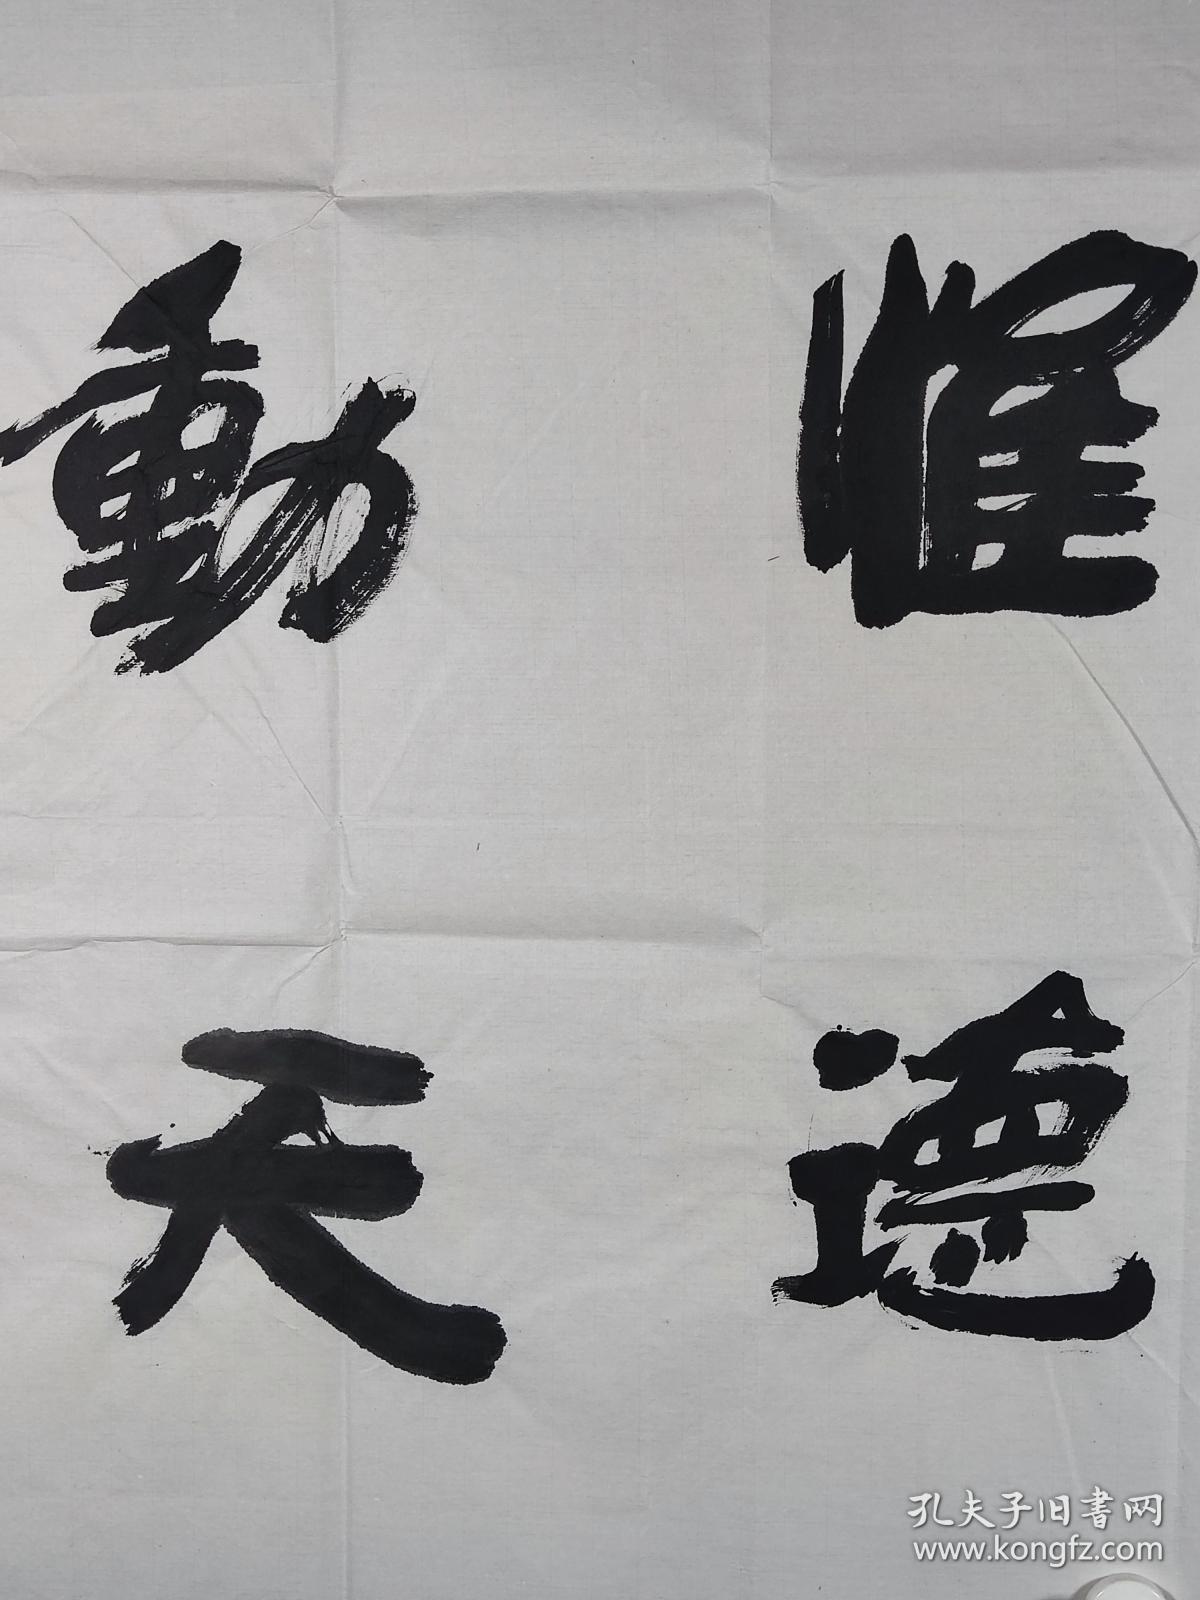 惟德
動天
孔夫子旧書网
www.kongfz.com